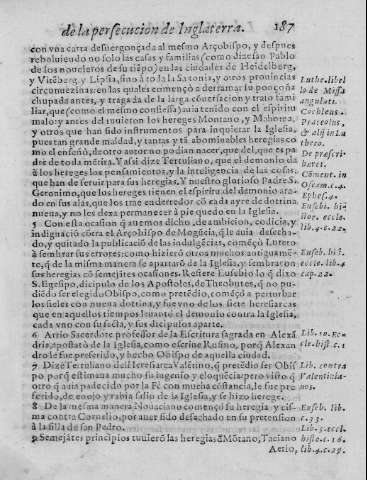 de la persecucion de Inglaterra. 187
con vna carta desuergonçada al mesmo Arçobispo, y despues
reboluiendo no solo las casas y familias (como dize san Pablo
de los noueleros de su tiẽpo) en las ciudades de Heidelberg,
y Vitẽberg, y Lipsia, sino a toda la Saxonia, y otros prouincias
circunuezinas: en las quales començò a derramar su ponçoña
chupada antes, y tragada de la larga cõuersacion y trato fami-
liar, que (como el mesmo confiessa) auia tenido con el espiritu
malo y antes del tuuieron los hereges Montano, y Mahoma,
y otros que han sido instrumentos para inquietar la Iglesia,
pues tan grande maldad, y tantas y tã abominables heregias co-
mo el enseñò, de otro autor no podian nacer, que del, que es pa-
dre de toda mẽtira. Y assi dize Tertuliano, que el demonio da
à los hereges los pensamientos, y la inteligencia de las cosas
que han de seruir para sus heregias. Y nuestro glorioso Padre S.
Geronimo, que los hereges tienen el espiritu del demonio atra-
do en sus alas, que los trae en derredor cõ cada ayre de dotrina
nueua, y no les dexa permanecer à pie quedo en la Iglesia.
5 Con esta ocasion q̃ auemos dicho, de ambicion, codicia, y
indignaciõ cõtra el Arçobispo de Mogũcia, q̃ le auia desecha-
do, y quitado la publicaciõ de las indulgẽcias, començò Lutero
à sembrar sus errores: como hizierõ otros muchos antiguamẽ-
te, q̃ de la misma manera se apartarõ de la Iglesia, y sembraron
sus heregias cõ semejates ocasiones. Refiere Eusebio lo q̃ dixo
S. Egesipo, dicipulo de los Apostoles, de Theobutes, q̃ no pu-
diẽdo ser elegido Obispo, como pretẽdio, començò a perturbar
los fieles con nueua dotrina, y fue vno de los siete heresiarcas
que en aquellos tiempos leuantò el demonio contra la Iglesia,
cada vno con su secta, y sus dicipulos aparte.
6 Arrio Sacerdote professor de la Escritura sagrada en Alexã-
dria, apostatò de la Iglesia, como escriue Rufino, porq̃ Alexan
dro le fue preferido, y hecho Obispo de aquella ciudad.
7 Dize Tertuliano del Heresiarca Valẽtino, q̃ pretẽdio ser Obis
po, porq̃ estimaua mucho su ingenio y eloquẽcia: pero visto q̃
otro q̃ auia padecido por la Fè con mucha cõstancia, le fue pre
ferido, de enojo y rabia salio de la Iglesia, y se hizo herege.
8 De la mesma manera Nouaciano començò su heregia y cis-
ma contra Cornelio, por auer sido desechado en su pretension
à la silla de san Pedro.
9 Semejãtes principios tuuierõ las heregias d̃ Mõtano, Taciano
Aerio,
Luthe. libel
lo de Missa
angulari.
Cochleus.
Prateolus,
& alij in Lu
thero.
De prescri-
Cõment. in
Oseam. c. 4.
Ephes. 4.
Eusebi. hi-
stor. eccle.
lib. 4. c. 22.
Euseb. hist.
eccle. lib. 4
cap. 22.
Lib. 10. Ec-
cle. hist. c. 1
Lib. contra
Valentinia-
nos.
Euseb. lib.
Lib. 5. eccl.
histo. c. 16.
lib. 4. c. 29.